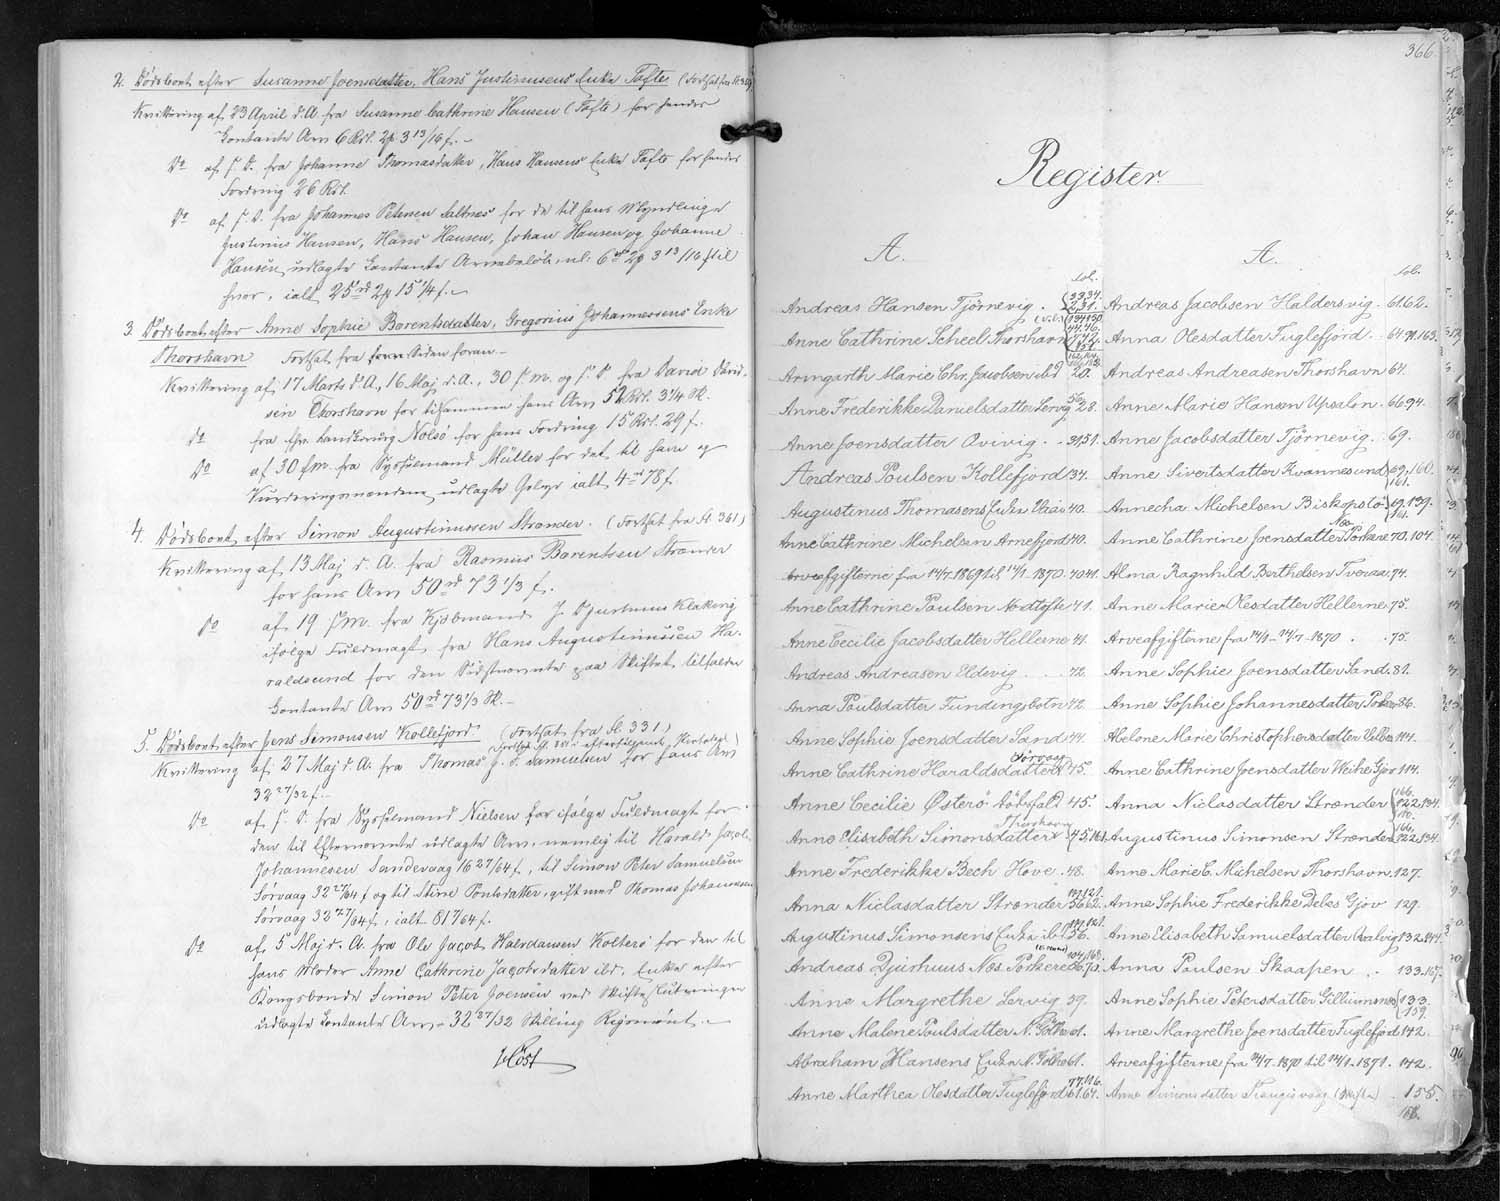 2. Dödsboet efter Susanne Joensdatter, Hans Justinusens Enke Tofte (Fortsat fra fl. 359)
Kvittering af 23 April d.A. fra Susanne Cathrine Hansen (Tofte) for hendes
Contante Arv 6 Rdl. 2 ₰ 3 13/16 f. -
Do af s. D. fra Johanne Thomasdatter, Hans Hansens Enke Tofte for hendes
Fordring 26 Rdl.
Do af s. D. fra Johannes Petersen Saltnæs for de til hans Myndlinge
Justinus Hansen, Hans Hansen, Johan Hansen og Johanne
Hansen udlagte Contante Arvebeløb, nl. 6 rd 2 ₰ 3 13/16 f til
hver, ialt 25 rd 2 ₰ 15 1/4 f. -
3. Dödsboet efter Anne Sophie Barentsdatter, Gregorius Johannessens Enke
Thorshavn Fortsat fra Siden foran. -
Kvittering af 17 Marts d.A., 16 Maj d.A., 30 s.m. og s. D. fra David David-
sen Thorshavn for tilsammen hans Arv 52 Rdl. 3 1/4 Sk.
do fra Landkirurg Nolsö for hans Fordring 15 Rdl. 29 f.
Do af 30 s.m. fra Sysselmand Müller for det til ham og
Vurderingsmændene udlagte Gebyr ialt 4 rd 78 f.
4. Dödsboet efter Simon Augustinussen Strænder. (Fortsat fra fl. 361)
Kvittering af 13 Maj d. A. fra Rasmus Barentsen Strænder
for hans Arv 50 rd 73 1/3 f.
Do af 19 s.m. fra Kjöbmand J. Djurhuus Klaksvig
ifølge Fuldmagt fra Hans Augustinussen Ha-
raldssund for den Sidstnævnte paa Skiftet tilfaldne
Contante Arv 50 rd 73 1/3 Sk. -
5. Dödsboet efter Jens Simonsen Kollefjord. (Fortsat fra fl. 331)
(Fortsat fl. 351 i efterfølgende Protokol)
Kvittering af 27 Maj d. A. fra Thomas J. F. Samuelsen for hans Arv
32 27/32 f. -
Do af s. D. fra Sysselmand Nielsen for ifølge Fuldmagt for
den til Efternævnte udlagte Arv, nemlig til Harald Jacob
Johannesen Sandevaag 16 27/64 f, til Simon Peter Samuelsen
Sørvaag 32 27/64 f og til Stine Poulsdatter, gift med Thomas Johannesen
Sørvaag 32 27/64 f., ialt 81 17/64 f.
Do af 5 Maj d. A. fra Ole Jacob Haerdansen Kolterö for den til
hans Moder Anne Cathrine Jacobsdatter ibd. Enke efter
Kongsbonde Simon Peter Joensen ved Skifteslutningen
udlagte Contante Arv - 32 27/32 Skilling Rigsmönt. -
Høst
366
Register.
A.
fol.
Andreas Hansen Tjörnevig. 33.34. 231.
Anne Cathrine Scheel Thorshavn
Armgarth Marie Chr. Jacobsen ibd 20.
Anne Frederikke Danielsdatter Lervig 28.
Anne Joensdatter Qvivig. - 31 51.
Andreas Poulsen Kollefjord 34.
Augustinus Thomasens Enke Vaag 40.
Anne Cathrine Michelsen Arnefjord 40.
Arveafgifterne fra 14/7 1869 til 14/1 1870. 40 41.
Anne Cathrine Poulsen Nodtofte 41.
Anne Cecilie Jacobsdatter Hellerne 41.
Andreas Andreasen Eldevig . . . 42
Anna Poulsdatter Fundingsbotn 42.
Anne Sophie Joensdatter Sand 44.
Anne Cathrine Haraldsdatter Sörvaag 45.
Anne Cecilie Østerö Töbsfald 45.
Anne Elisabeth Simonsdatter Thorshavn 45, 161.
Anne Frederikke Bech Hove. 48.
Anna Niclasdatter Strænder 56 62.
Augustinus Simonsens Enke ibd 56.
Andreas Djurhuus Næs. Porkere 66. 70.
Anne Margrethe Lervig 59.
Anne Malene Poulsdatter N. Göthe 61.
Abraham Hansens Enke N. Göthe 61.
Anne Marthea Olesdatter Fuglefjord 61. 64. 77. 116.
A.
fol.
Andreas Jacobsen Haldersvig. 61 62.
Anna Olesdatter Fuglefjord. 64. 90. 163.
Andreas Andreasen Thorshavn 64.
Anne Marie Hansen Upsalon. 66 94.
Anne Jacobsdatter Tjörnevig. 69.
Anne Sivertsdatter Kvannesund 69, 160. 161.
Annecha Michelsen Biskopstö 69, 139. 161.
Anne Cathrine Joensdatter Næs Porkere 70, 104.
Alma Ragnhild Berthelsen Tveraa 74.
Anne Marie Olesdatter Hellerne 75.
Arveafgifterne fra 14/1 - 14/7 - 1870 . . 75.
Anne Sophie Joensdatter Sand. 81.
Anne Sophie Johannesdatter Porkere 86.
Abelone Marie Christophersdatter Velbe 114.
Anne Cathrine Joensdatter Weihe Gjov 114.
Anna Niclasdatter Strænder 166. 122, 134. 110.
Augustinus Simonsen Strænder 166. 122, 134.
Anne Marie C. Michelsen Thorshavn 127.
Anne Sophie Frederikke Debes Gjov 129.
Anne Elisabeth Samuelsdatter Qvalvig 132. 144.
Anna Poulsen Skaapen . . 133. 167.
Anne Sophie Petersdatter Gilliumsnæs 133. 159.
Anne Margrethe Joensdatter Fuglefjord 142.
Arveafgifterne fra 14/7 - 1870 til 14/1 - 1871. 142.
Anne Simonsdatter Trangisvaag (Skifte) . 158.
168.